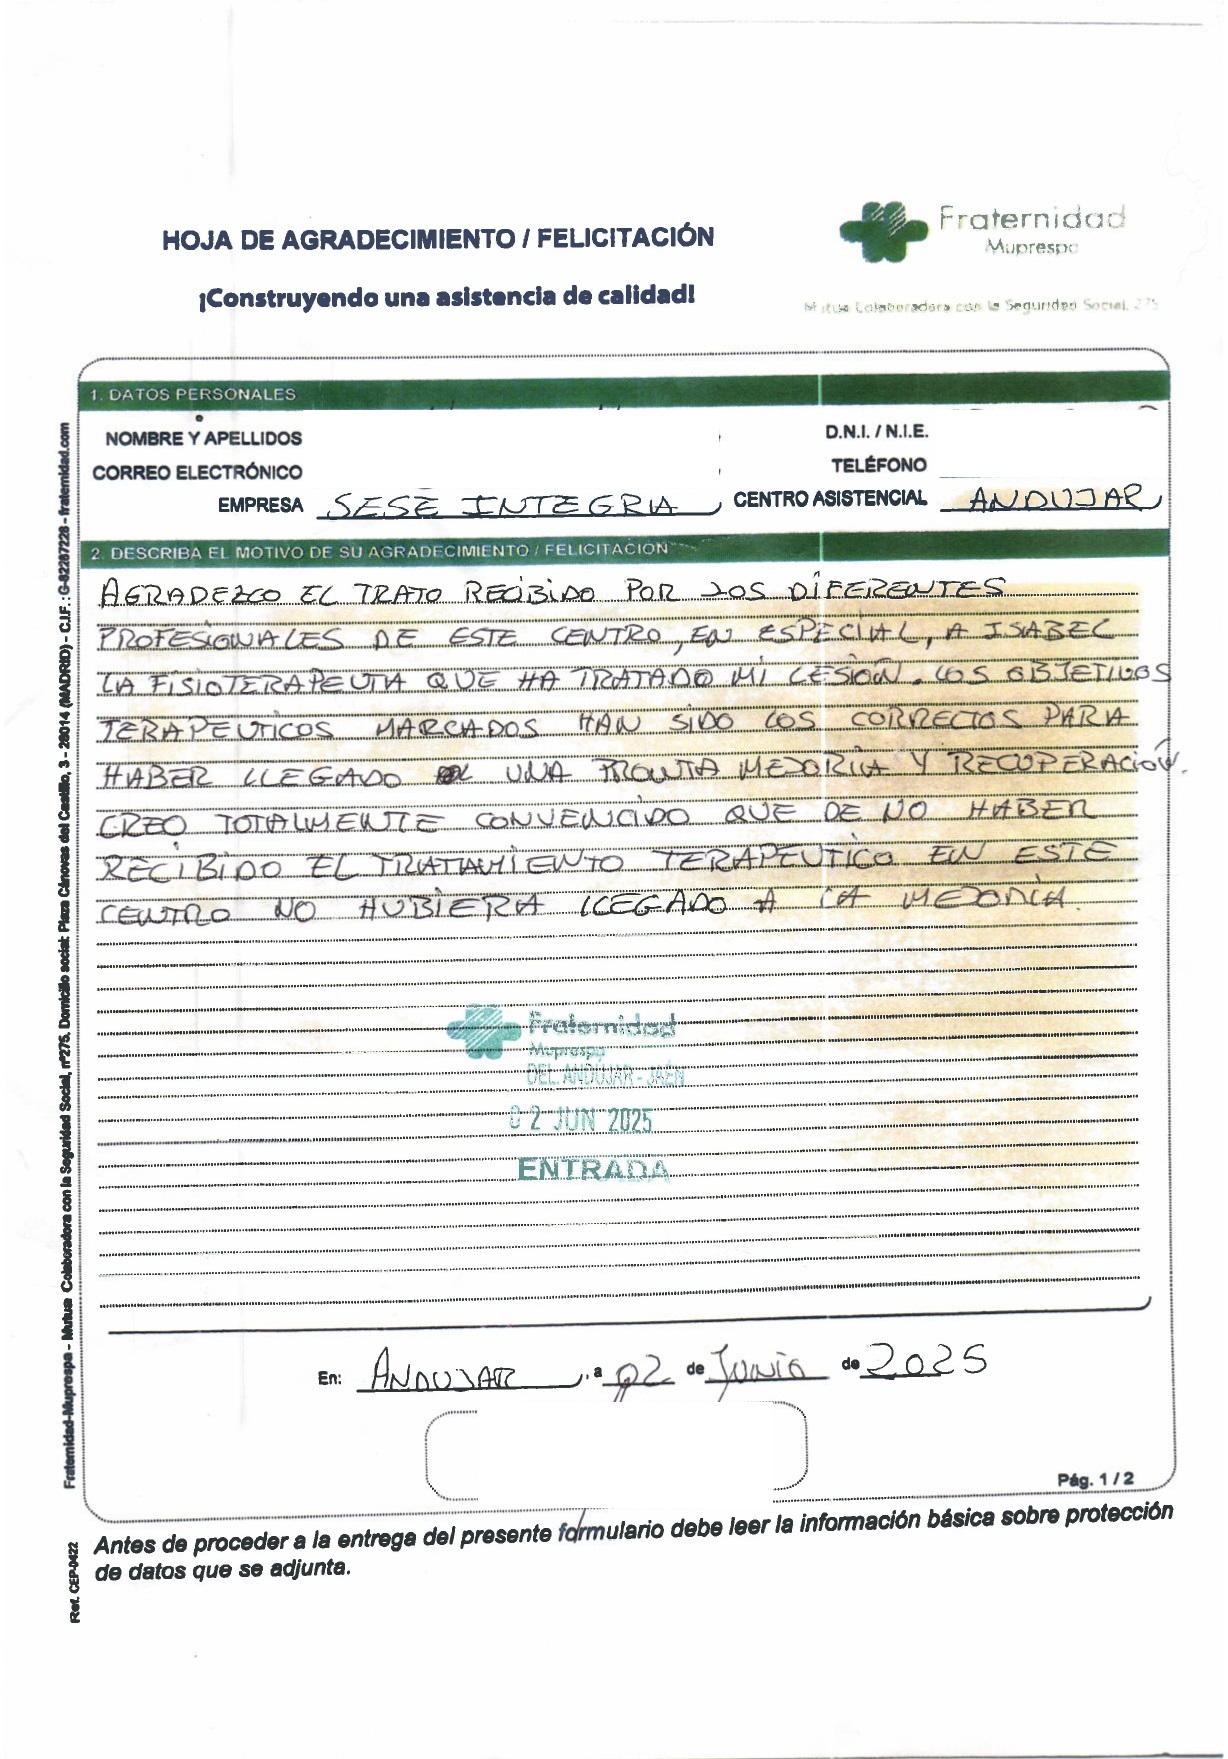 HOJA DE AGRADECIMIENTO / FELICITACIÓN
¡Construyendo una asistencia de calidad!
Fraternidad
Muprespa
Mutua Colaboradora con la Seguridad Social, 275
1. DATOS PERSONALES
NOMBRE Y APELLIDOS
D.N.I. / N.I.E.
CORREO ELECTRÓNICO
TELÉFONO
EMPRESA SESE INTEGRA
CENTRO ASISTENCIAL ANDUJAR
2. DESCRIBA EL MOTIVO DE SU AGRADECIMIENTO / FELICITACIÓN
AGRADEZCO EL TRATO RECIBIDO POR LOS DIFERENTES
PROFESIONALES DE ESTE CENTRO, EN ESPECIAL, A ISABEL
LA FISIOTERAPEUTA QUE HA TRATADO MI LESIÓN. LOS OBJETIVOS
TERAPEUTICOS MARCADOS HAN SIDO LOS CORRECTOS PARA
HABER LLEGADO UNA PRONTA MEJORIA Y RECUPERACIÓN.
CREO TOTALMENTE CONVENCIDO QUE DE NO HABER
RECIBIDO EL TRATAMIENTO TERAPEUTICO EN ESTE
CENTRO NO HUBIERA LLEGADO A LA MEJORÍA.
Fraternidad
Muprespa
DEL. ANDÚJAR - JAÉN
02 JUN 2025
ENTRADA
En: ANDUJAR, a 02 de Junio de 2025
Pág. 1 / 2
Antes de proceder a la entrega del presente formulario debe leer la información básica sobre protección
de datos que se adjunta.
Fraternidad-Muprespa - Mutua Colaboradora con la Seguridad Social, nº275. Domicilio social: Plaza Cánovas del Castillo, 3 - 28014 (MADRID) - C.I.F.: G-82287228 - fraternidad.com
Ref. CEP-0422